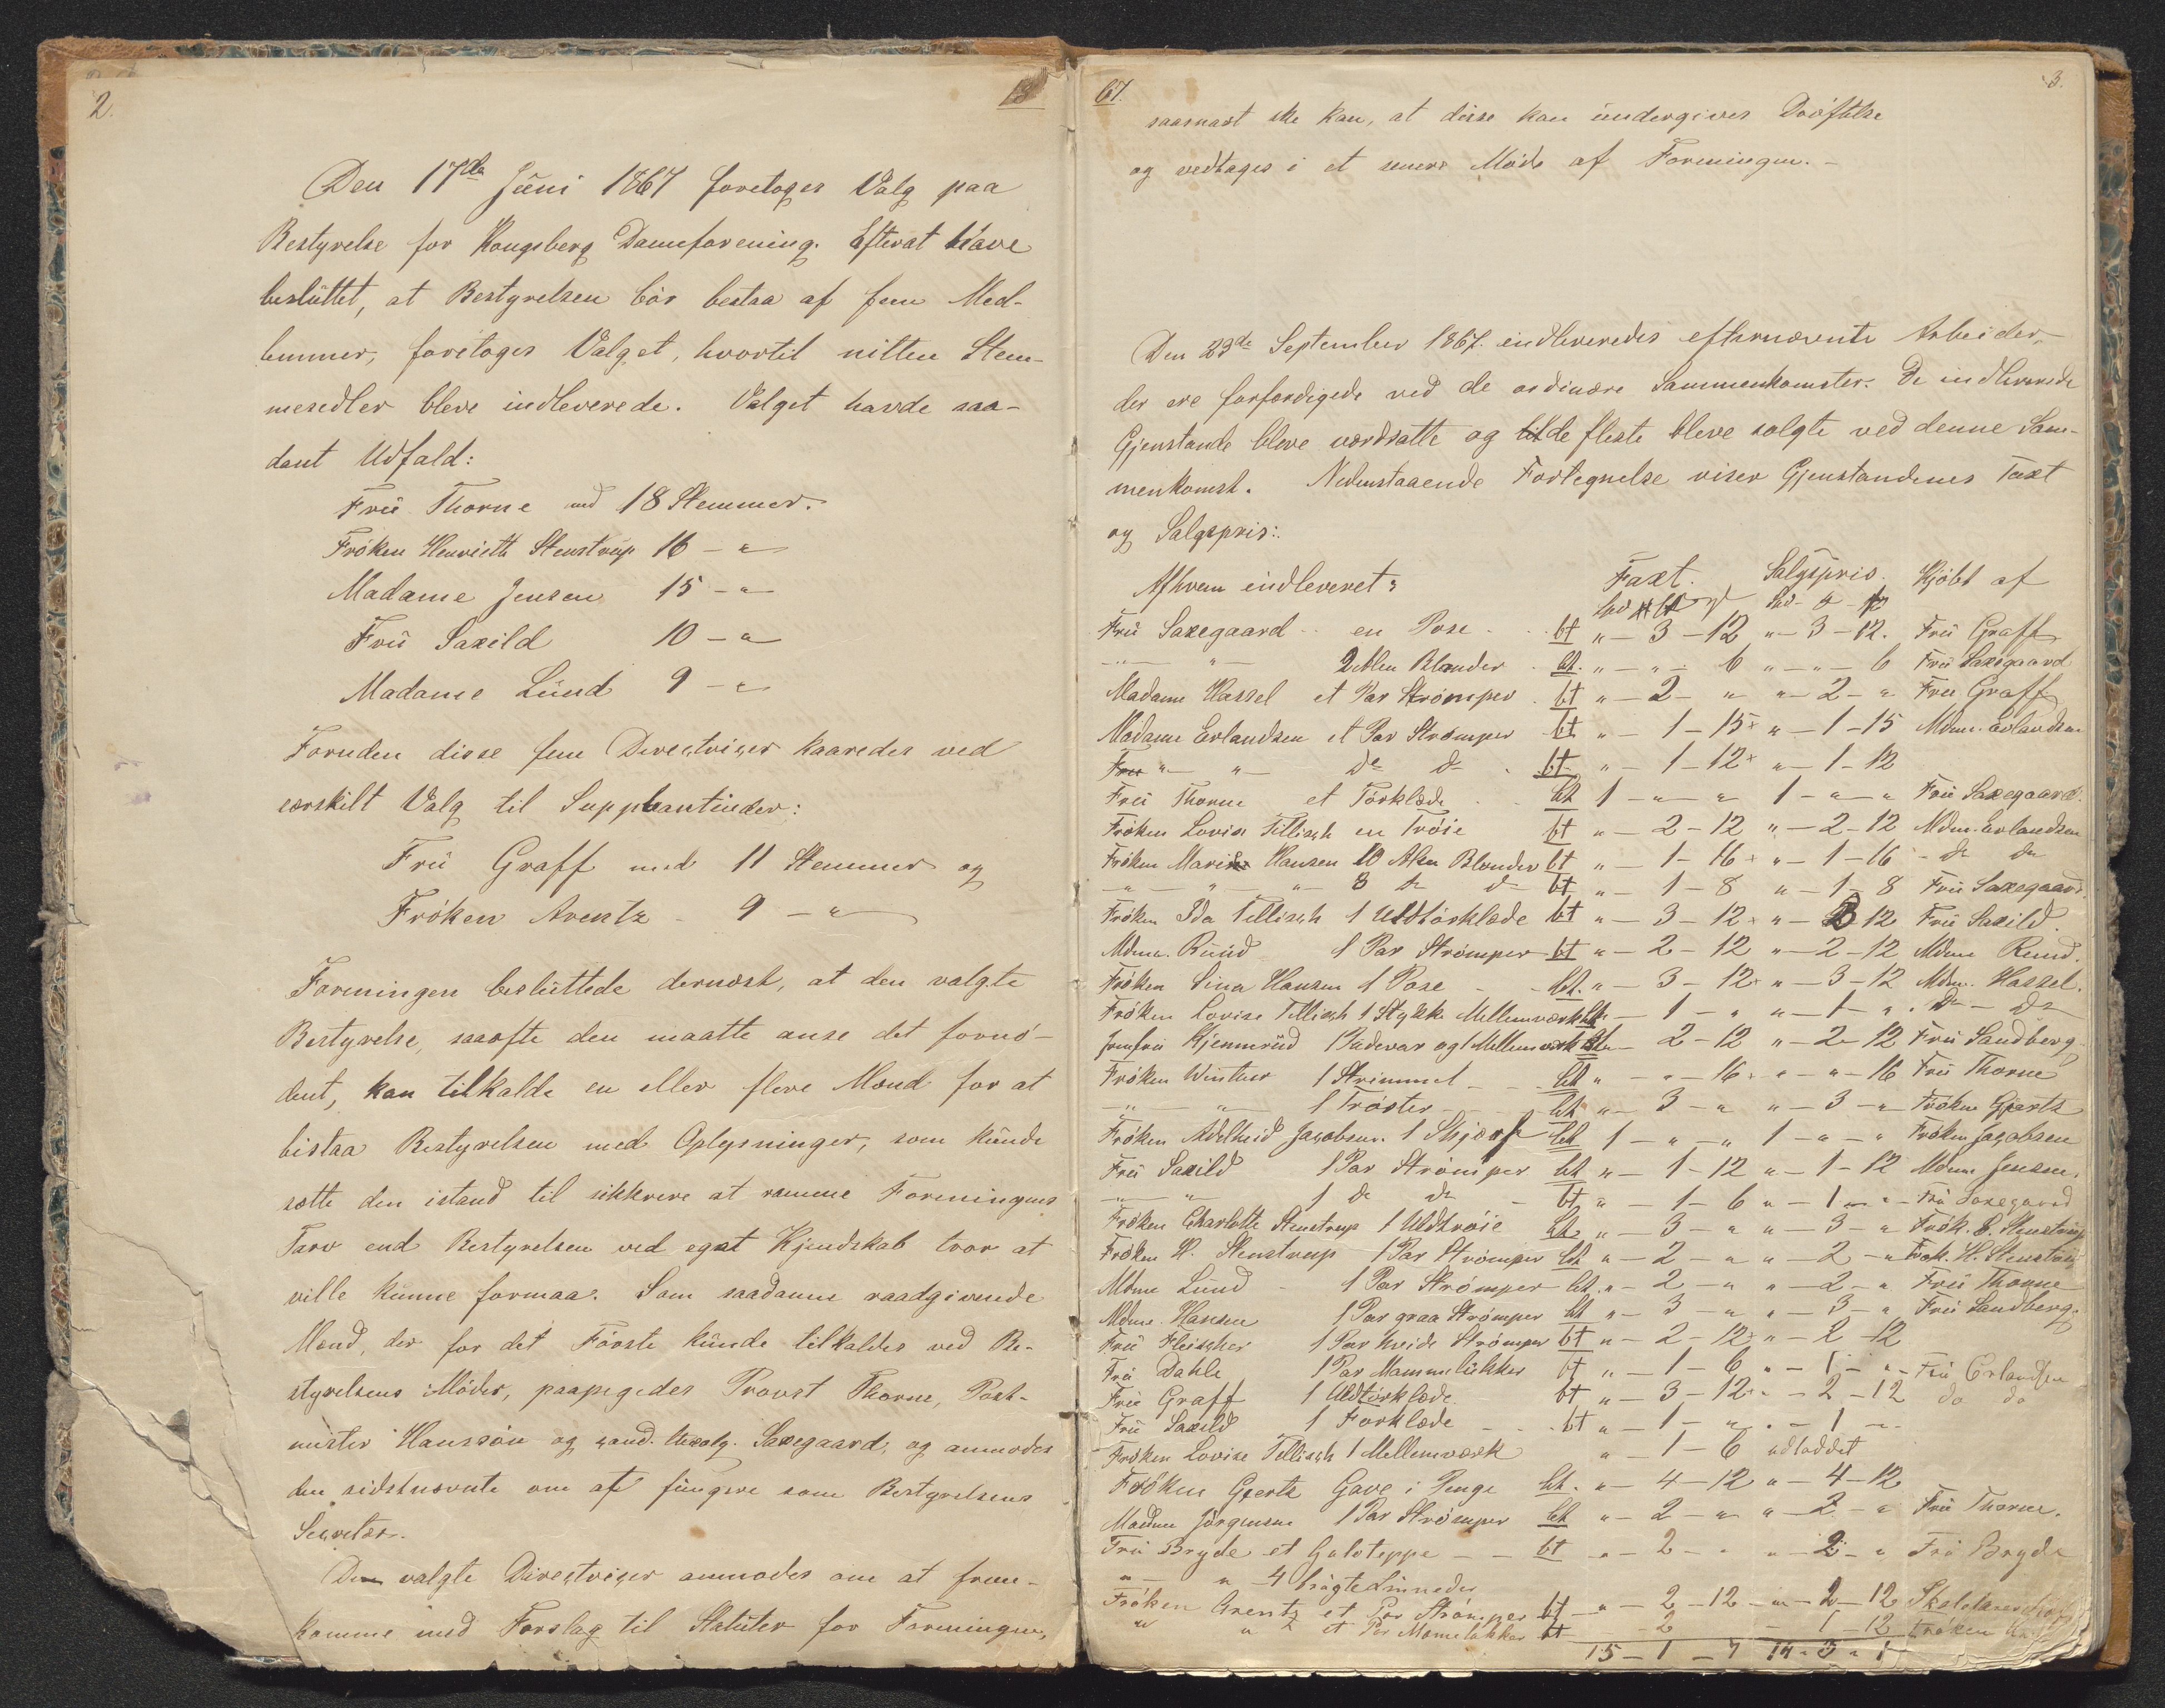 2.
Den 17de Juni 1867 foretoges Valg paa
Bestyrelse for Kongsberg Dameforening. Efterat have
besluttet, at Bestyrelsen bör bestaa af fem Med-
lemmer, foretoges Valget, hvortil nitten Stem-
mesedler bleve indleverede. Valget havde saa-
dant Udfald:
Frü Thorne med 18 Stemmer.
Fröken Henriette Stenstrup 16 - "
Madame Jensen 15 - "
Frü Saxild 10 - "
Madame Lünd 9 - "
Foruden disse fem Directricer kaaredes ved
særskilt Valg til Suppleantinder:
Frü Graff med 11 Stemmer og
Fröken Arentz - 9 - "
Foreningen besluttede dernæst, at den valgte
Bestyrelse, saaofte den maatte anse det fornö-
dent, kan tilkalde en eller flere Mænd for at
bistaa Bestyrelsen med Oplysninger, som kunde
sætte den istand til sikkrere at ramme Foreningens
Tarv end Bestyrelsen ved eget Kjendskab tror at
ville kunne formaa. Som saadanne raadgivende
Mænd, der for det Förste kunde tilkaldes ved Be-
styrelsens Möder, paapegedes Provst Thorne, Post-
mester Hanssön og cand. theolg. Saxegaard, og anmodes
den sidstnævnte om at fungere som Bestyrelsens
Secretær.
De valgte Directricer anmodes om at frem-
komme med Forslag til Statuter for Foreningen,
67.
3.
saasnart ske kan, at disse kan undergives Dröftelse
og vedtages i et senere Möde af Foreningen. -
Den 23de September 1867. indleveredes efternævnte Arbeider,
der ere forfærdigede ved de ordinære Sammenkomster. De indleverede
Gjenstande bleve værdsatte og de fleste bleve solgte ved denne Sam-
menkomst. Nedenstaaende Fortegnelse viser Gjenstandenes Taxt
og Salgspris:
Afhvem indleveret: Taxt. Salgspris. Kjöbt af
Frü Saxegaard en Pose bt " - 3 - 12 " - 3 - 12. Frü Graff
- " - " - 2 Alen Blonder bt. " - " - 6 " - " - 6 Frü Saxegaard
Madame Hassel et Par Strömper bt " - 2 - " " - 2 - " Frü Graff
Madame Erlandsen et Par Strömper bt " - 1 - 15 " - 1 - 15 Mdme. Erlandsen
" - " - do do bt " - 1 - 12 " - 1 - 12
Frü Thorne et Törklæde bt 1 - " - " 1 - " - " Frü Saxegaard.
Fröken Lovise Tillisch en Tröie bt " - 2 - 12 " - 2 - 12 Mdme. Erlandsen
Fröken Marie Hansen 10 Alen Blonder bt " - 1 - 16 " - 1 - 16 - do do
- " - " - " - 8 do do bt " - 1 - 8 " - 1 - 8 Frü Saxegaard
Fröken Ida Tillisch 1 Uldtörklæde bt " - 3 - 12 " - 3 - 12 Frü Saxild.
Mdme. Ruud 1 Par Strömper bt " - 2 - 12 " - 2 - 12 Mdme Ruud.
Fröken Sina Hansen 1 Pose bt. " - 3 - 12 " - 3 - 12 Mdme. Hassel.
Fröken Lovise Tillisch 1 Stykke Mellemværk bt " - 1 - " " - 1 - ". do - do
Jomfrü Kjennerüd 1 Pudevar og 1 Mellemværk bt " - 2 - 12 " - 2 - 12 Frü Sandberg
Fröken Winther 1 Strimmel bt " - " - 16 " - " - 16 Frü Thorne
- " - " - 1 Tröster bt " - 3 - " " - 3 - " Fröken Geertz
Fröken Adelheid Jacobsen. 1 Skjærf bt 1 - " - " 1 - " - " Fröken Jacobsen
Frü Saxild 1 Par Strömper bt " - 1 - 12 " - 1 - 12 Mdme Jensen.
- " - " 1 do do bt " - 1 - 6 " - 1 - " - Frü Saxegaard
Fröken Charlotte Stenstrup 1 Uldtröie bt " - 3 - " " - 3 - " Frök. C. Stenstrup
Fröken H. Stenstrup 1 Par Strömper bt " - 2 - " " - 2 - " Frök. H. Stenstrup
Mdme Lund 1 Par Strömper bt. " - 2 - " " - 2 - " Frü Thorne
Mdme. Hansen 1 Par graa Strömper bt " - 3 - " " - 3 - " Frü Sandberg.
Frü Fleischer 1 Par hvide Strömper bt " - 2 - 12 " - 2 - 12
Frü Dahle 1 Par Mammelukker bt " - 1 - 6 " - 1 - " - Frü Erlandsen
Frü Graff 1 Uldtörklæde bt " - 3 - 12 " - 2 - 12 do do
Frü Saxild 1 Forklæde bt " - 1 - " " - 1 - "
Fröken Lovise Tillisch 1 Mellemværk " - 1 - 6 udloddet
Fröken Geertz Gave i Penge bt. " - 4 - 12 " - 4 - 12
Madme Jörgensen 1 Par Strömper bt " - 2 - " " - 2 - " Frü Thorne.
Frü Bryde et Gulvteppe bt " - 2 - " " - 2 - " Frü Bryde
" - " - 4
Fröken Arentz et Par Strömper bt " - 2 - 12 " - 2 - 12
" " et Par Mamelukker bt - 2 - 1 - 12 Fröken
15 - 1 - 7 14 - 3 - 1